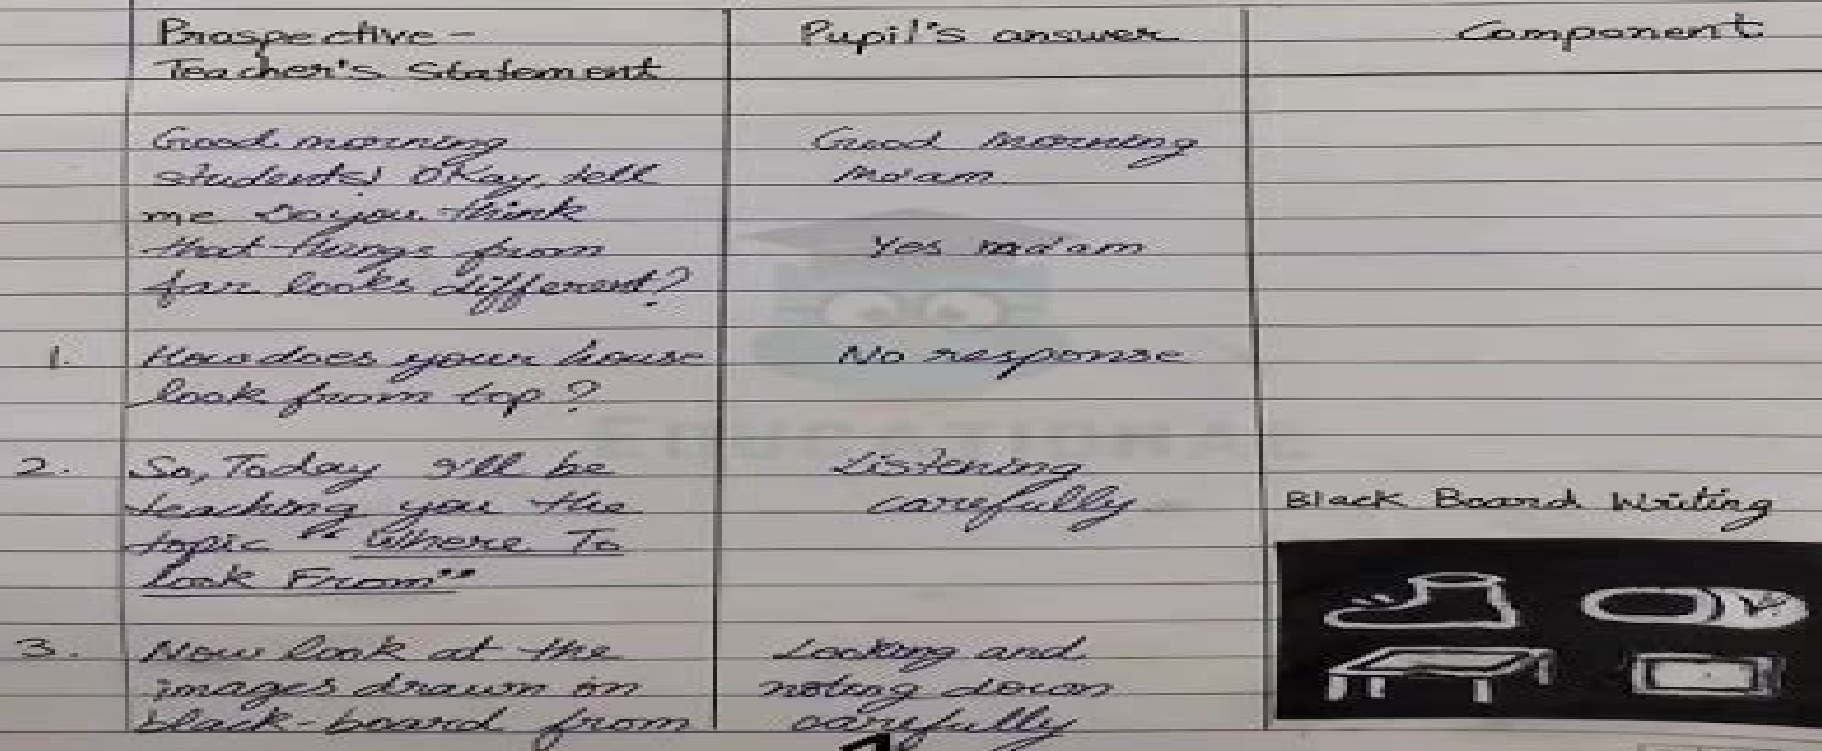 Prospective-
Teacher's Statement
Pupil's answer
Component
Good morning
students! Okay, tell
me Do you think
that things from
far looks different?
Good morning
ma'am
Yes ma'am
1. How does your house
look from top?
No response
2. So, Today I'll be
teaching you the
topic "Where To
Look From"
Listening
carefully
Black Board Writing
3. Now look at the
images drawn on
black-board from
Looking and
noting down
carefully
EDUCATIONAL